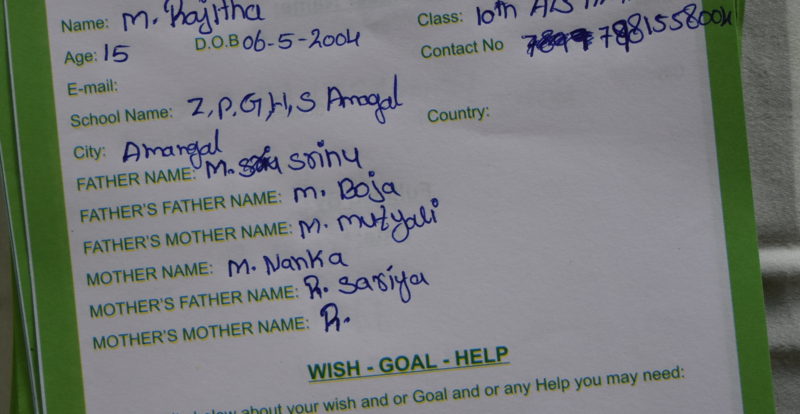 Name: M. Rajitha Class: 10th
Age: 15 D.O.B 06-5-2004 Contact No 7981558004
E-mail:
School Name: Z,P,G,H,S Amagal Country:
City: Amangal
FATHER NAME: M. Srinu
FATHER'S FATHER NAME: M. Boja
FATHER'S MOTHER NAME: M. mutyali
MOTHER NAME: M. Nanka
MOTHER'S FATHER NAME: R. Sariya
MOTHER'S MOTHER NAME: R.
WISH - GOAL - HELP
below about your wish and or Goal and or any Help you may need: